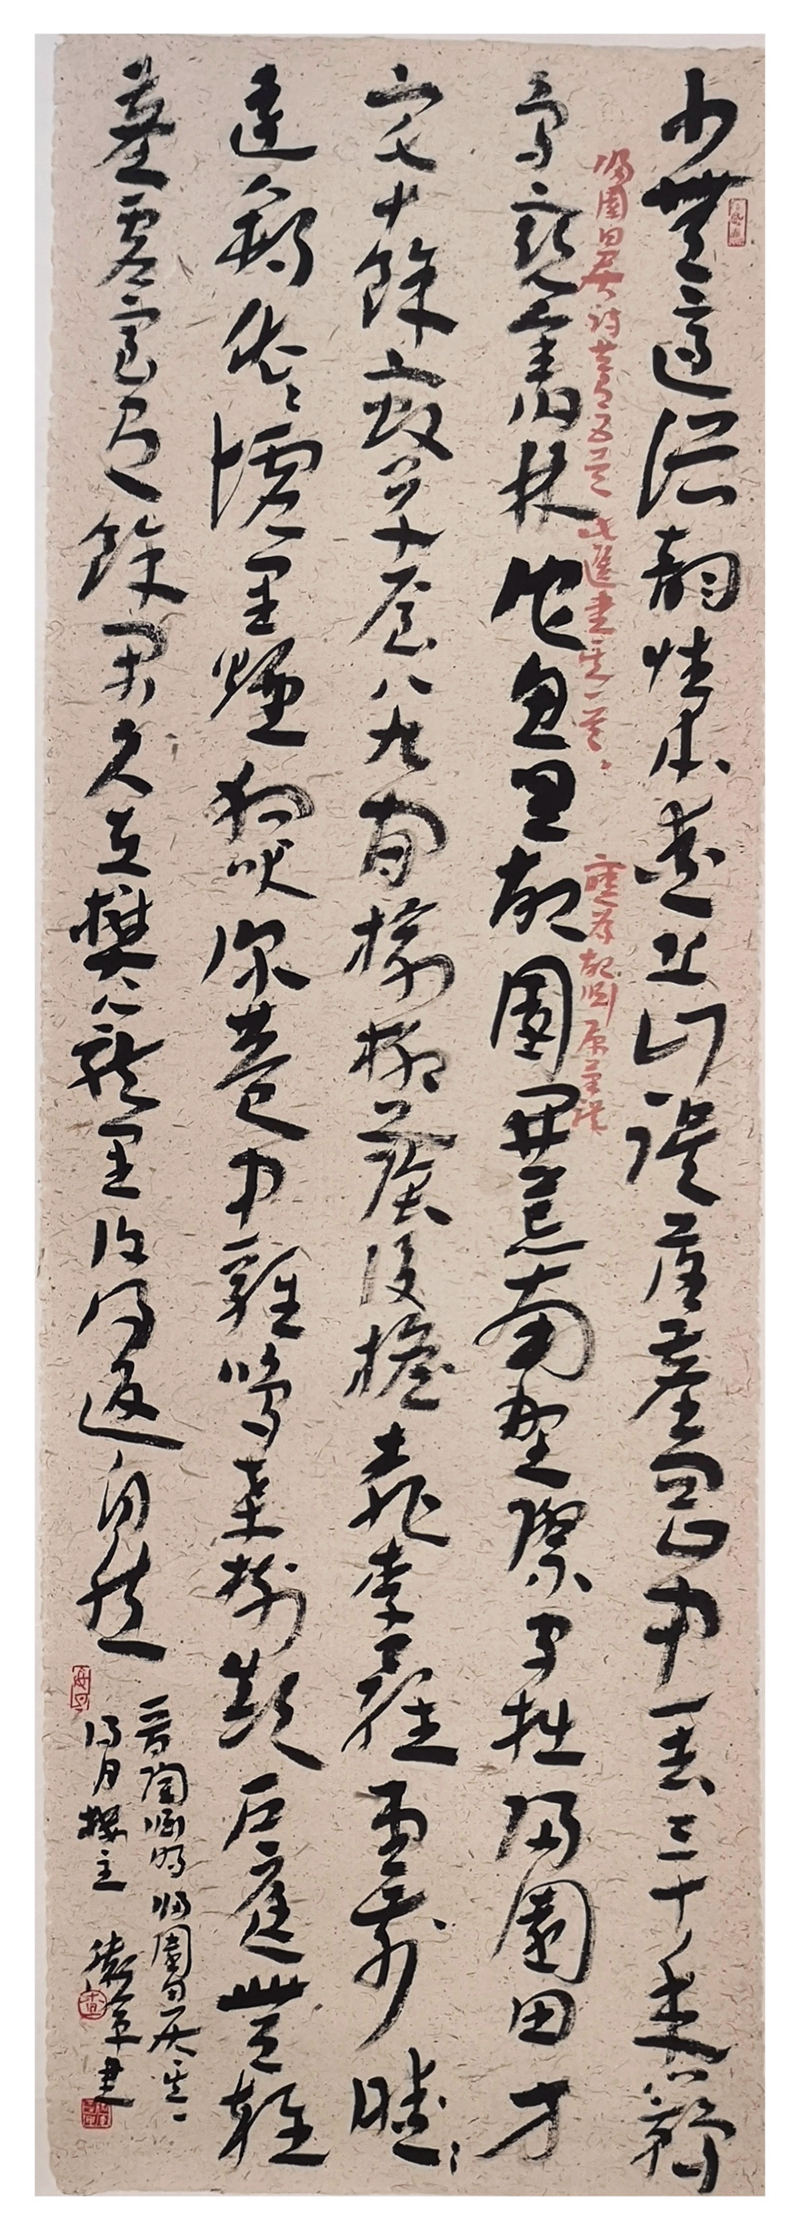 少無適俗韻性本愛丘山誤落塵网中一去三十年羈
鳥戀舊林池魚思故園開荒南野際守拙歸園田方
宅十餘畝草屋八九間榆柳蔭後檐桃李羅堂前曖々
遠村依々墟里煙狗吠深巷中雞鳴桑樹顛戶庭無雜
塵虛室有餘閒久在樊籠里復得返自然
晉陶淵明歸園田居其一
得月樓主 書
歸園田居詩共有五首此選書其一首
應為故淵原筆誤